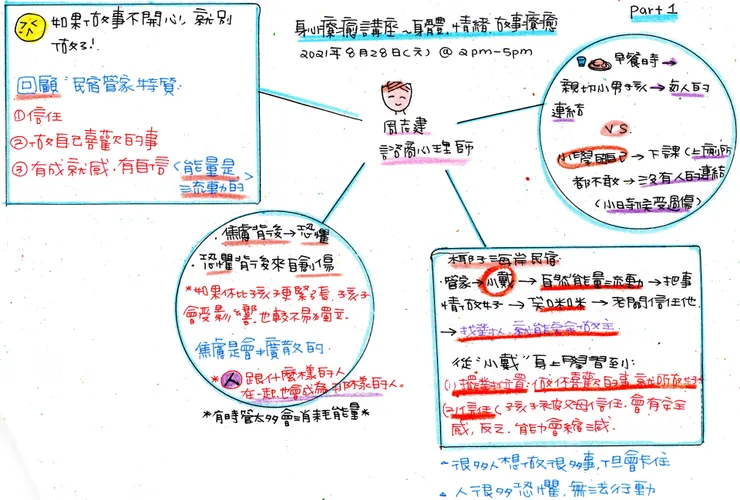 Part 1
身心療癒講座～身體,情緒,故事療癒
2021年8月28日(六) @ 2pm-5pm
周志建
諮商心理師
如果做事不開心!, 就別
做了!.
回顧"民宿管家"特質:
①信任
②做自己喜歡的事
③有成就感.有自信(能量是
流動的)
早餐時→
親切小男孩→與人的
連結
VS.
小學自己→下課(上廁所
都不敢→沒有人的連結
(小時候受過傷)
．焦慮背後→恐懼
．恐懼背後來自創傷
*如果你比孩子更緊張,孩子
會受影響,也較不易獨立.
焦慮是會擴散的.
*人跟什麼樣的人
在一起,也會成為那樣的人.
*有時管太多會消耗能量*
椰子海岸民宿
管家→小戴→自然能量流動→把事
情做好→笑咪咪→老闆信任他
→找對人,就能當家做主
從"小戴"身上學習到:
(1)擺對位置:做什喜歡的事就所做好
(2)信任(孩子被父母信任,會有安全
感,反之,能力會縮減.
~很多人想做很多事,但會卡住
~人很多恐懼,無法行動